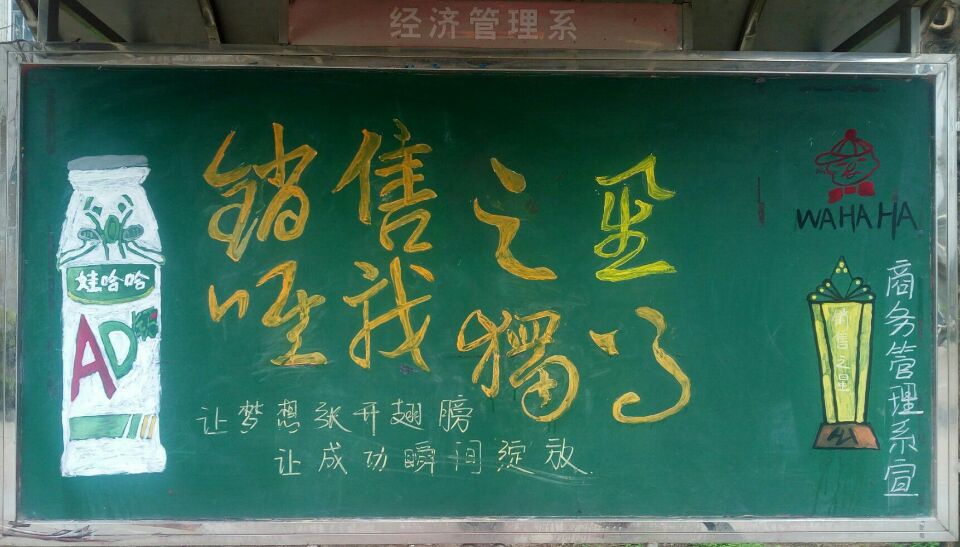 经济管理系
销售之星
唯我獨尊
让梦想张开翅膀
让成功瞬间绽放.
娃哈哈
AD钙
WAHAHA
销售之星
商务管理系宣